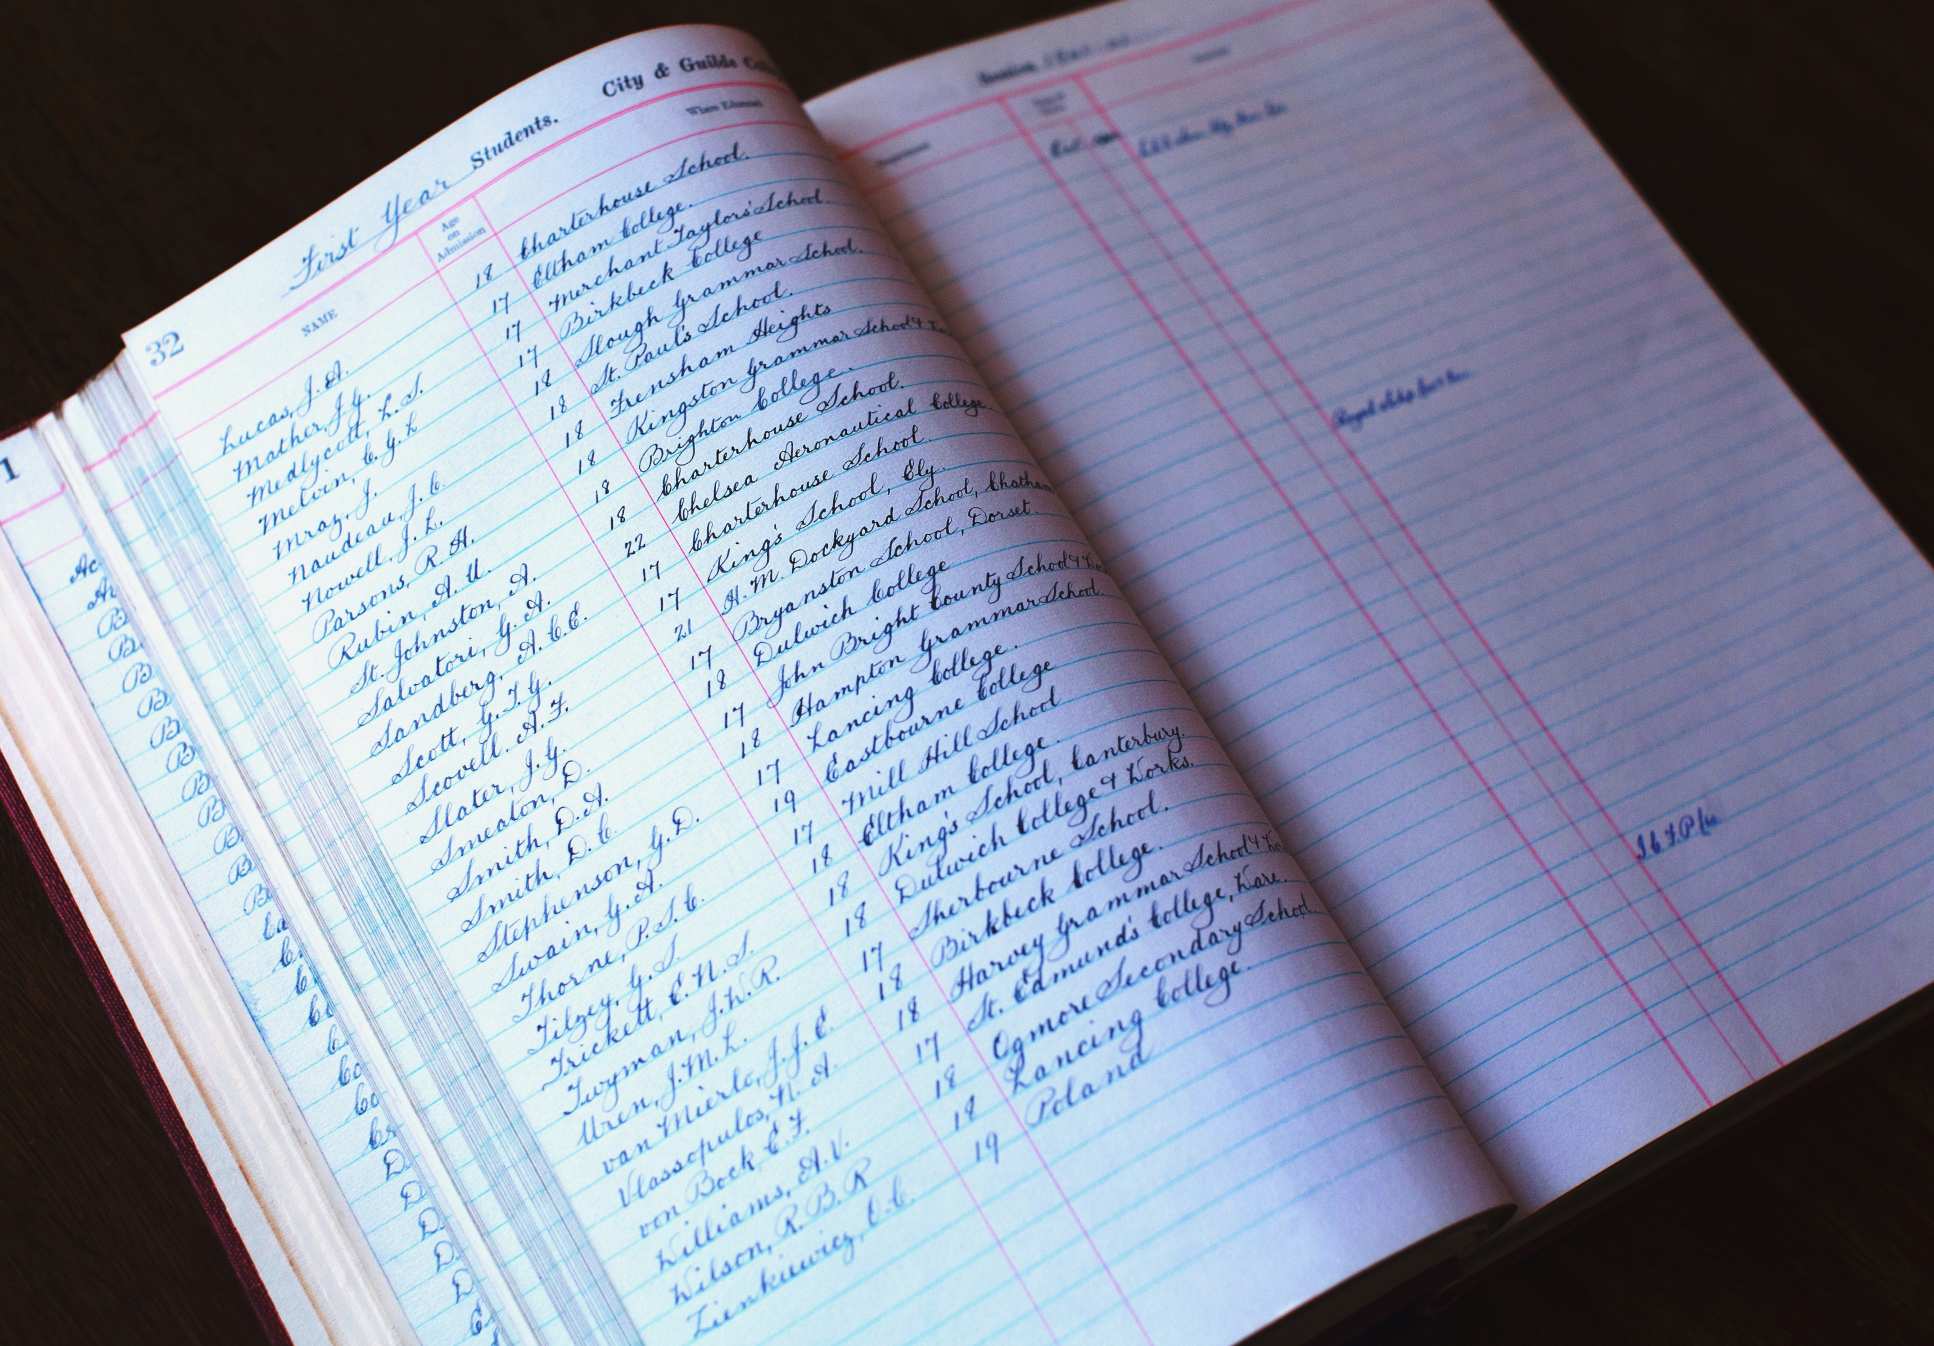 First Year Students. City & Guilds
32
NAME Age on Admission Where Educated
Lucas, J. A. 18 Charterhouse School.
Mather, J. G. 17 Eltham College.
Medlycott, L. S. 17 Merchant Taylors' School.
Melvin, C. G. L 17 Birkbeck College
Mraz, J. 18 Slough Grammar School.
Naudeau, J. C. 18 St. Paul's School.
Nowell, J. L. 18 Frensham Heights
Parsons, R. H. 18 Kingston Grammar School &
Rubin, A. U. 18 Brighton College.
St. Johnston, A. 18 Charterhouse School.
Salvatori, G. A. 22 Chelsea Aeronautical College.
Sandberg, A. C. E. 17 Charterhouse School.
Scott, G. T. G. 17 King's School, Ely.
Scovell. A. F. 21 H. M. Dockyard School, Chatham
Slater, J. G. 17 Bryanston School, Dorset.
Smeaton, D. 18 Dulwich College
Smith, D. A. 17 John Bright County School &
Smith, D. C. 18 Hampton Grammar School.
Stephenson, G. D. 17 Lancing College.
Swain, G. A. 19 Eastbourne College
Thorne, P. S. C. 17 Mill Hill School
Tilzey, G. S. 18 Eltham College.
Trickett, E. N. S. 18 King's School, Canterbury.
Twyman, J. W. R. 18 Dulwich College & Works.
Uren, J. M. L. 17 Sherbourne School.
van Mierlo, J. J. E 18 Birkbeck College.
Vlassopulos, N. A. 18 Harvey Grammar School &
von Bock, E. F. 17 St. Edmund's College, Ware.
Williams, A. V. 18 Ogmore Secondary School.
Wilson, R. B. R 18 Lancing College.
Zienkiewicz, O. C. 19 Poland
1
Session